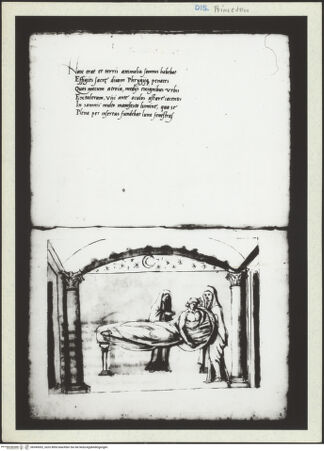 DIS. Princeton
Nox erat et terris animalia somnus habebat
Effigies sacrę divum Phrygiiq; penates
Quos mecum a troia, mediisq; ex ignibus urbis
Extuleram, visi ante oculos astare iacentis
In somnis multo manifesti lumine, qua se
Plena per insertas fundebat luna fenestras